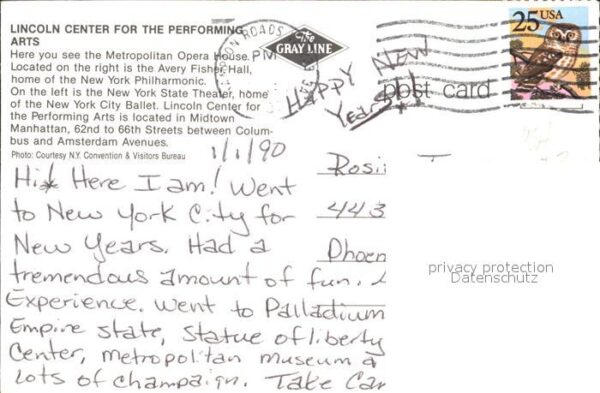 LINCOLN CENTER FOR THE PERFORMING
ARTS
Here you see the Metropolitan Opera House.
Located on the right is the Avery Fisher Hall,
home of the New York Philharmonic.
On the left is the New York State Theater, home
of the New York City Ballet. Lincoln Center for
the Performing Arts is located in Midtown
Manhattan, 62nd to 66th Streets between Colum-
bus and Amsterdam Avenues.
Photo: Courtesy N.Y. Convention & Visitors Bureau
The
GRAY LINE
ROADS
PM
25 USA
post card
HAPPY NEW
Years!
1/1/90
Hi! Here I am! Went
to New York City for
New Years. Had a
tremendous amount of fun.
Experience. Went to Palladium
Empire State, Statue of liberty
Center, metropolitan museum &
Lots of champaign. Take Car
Rosi
443
Phoen
privacy protection
Datenschutz